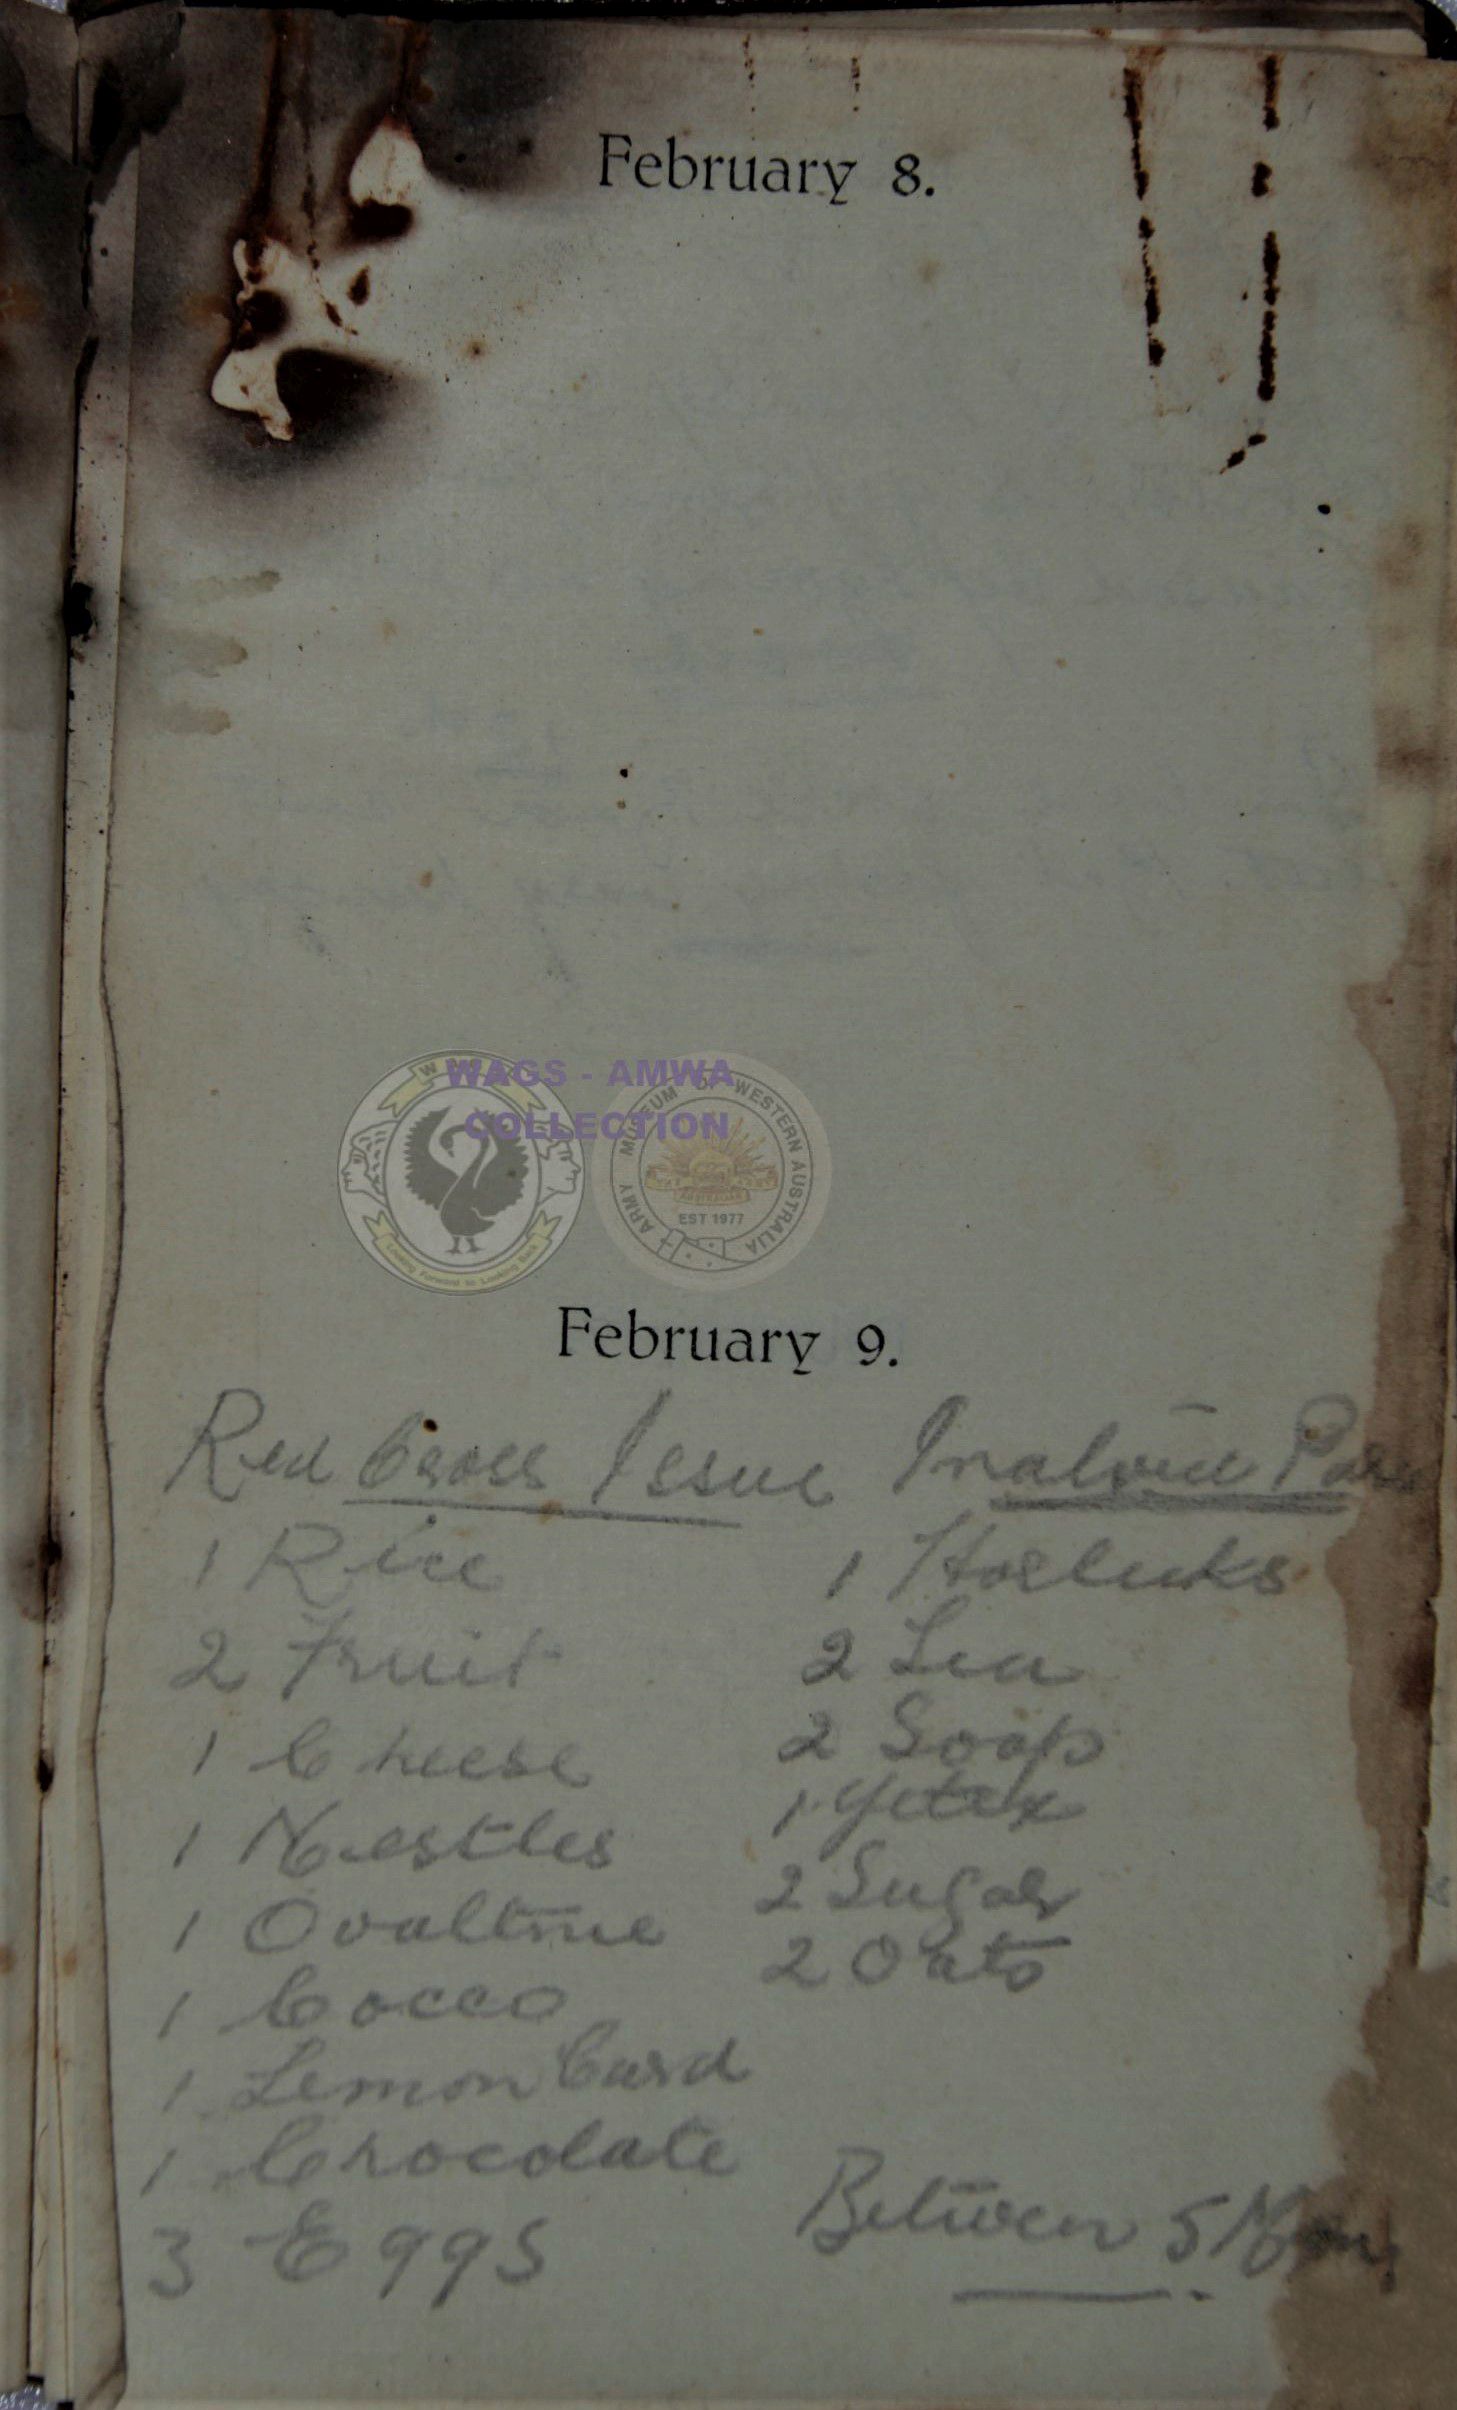 February 8.
WAGS - AMWA
COLLECTION
ARMY MUSEUM OF WESTERN AUSTRALIA
THE ARMY
AUSTRALIAN
EST 1977
Looking Forward to Looking Back
February 9.
Red Cross Issue Invalid
1 Rice 1 Horlicks
2 Fruit 2 Tea
1 Cheese 2 Soap
1 Nestles 1
1 Ovaltine 2 Sugar
1 Cocco 2 Oats
1 Lemon Curd
1 Chocolate
3 Eggs Between 5